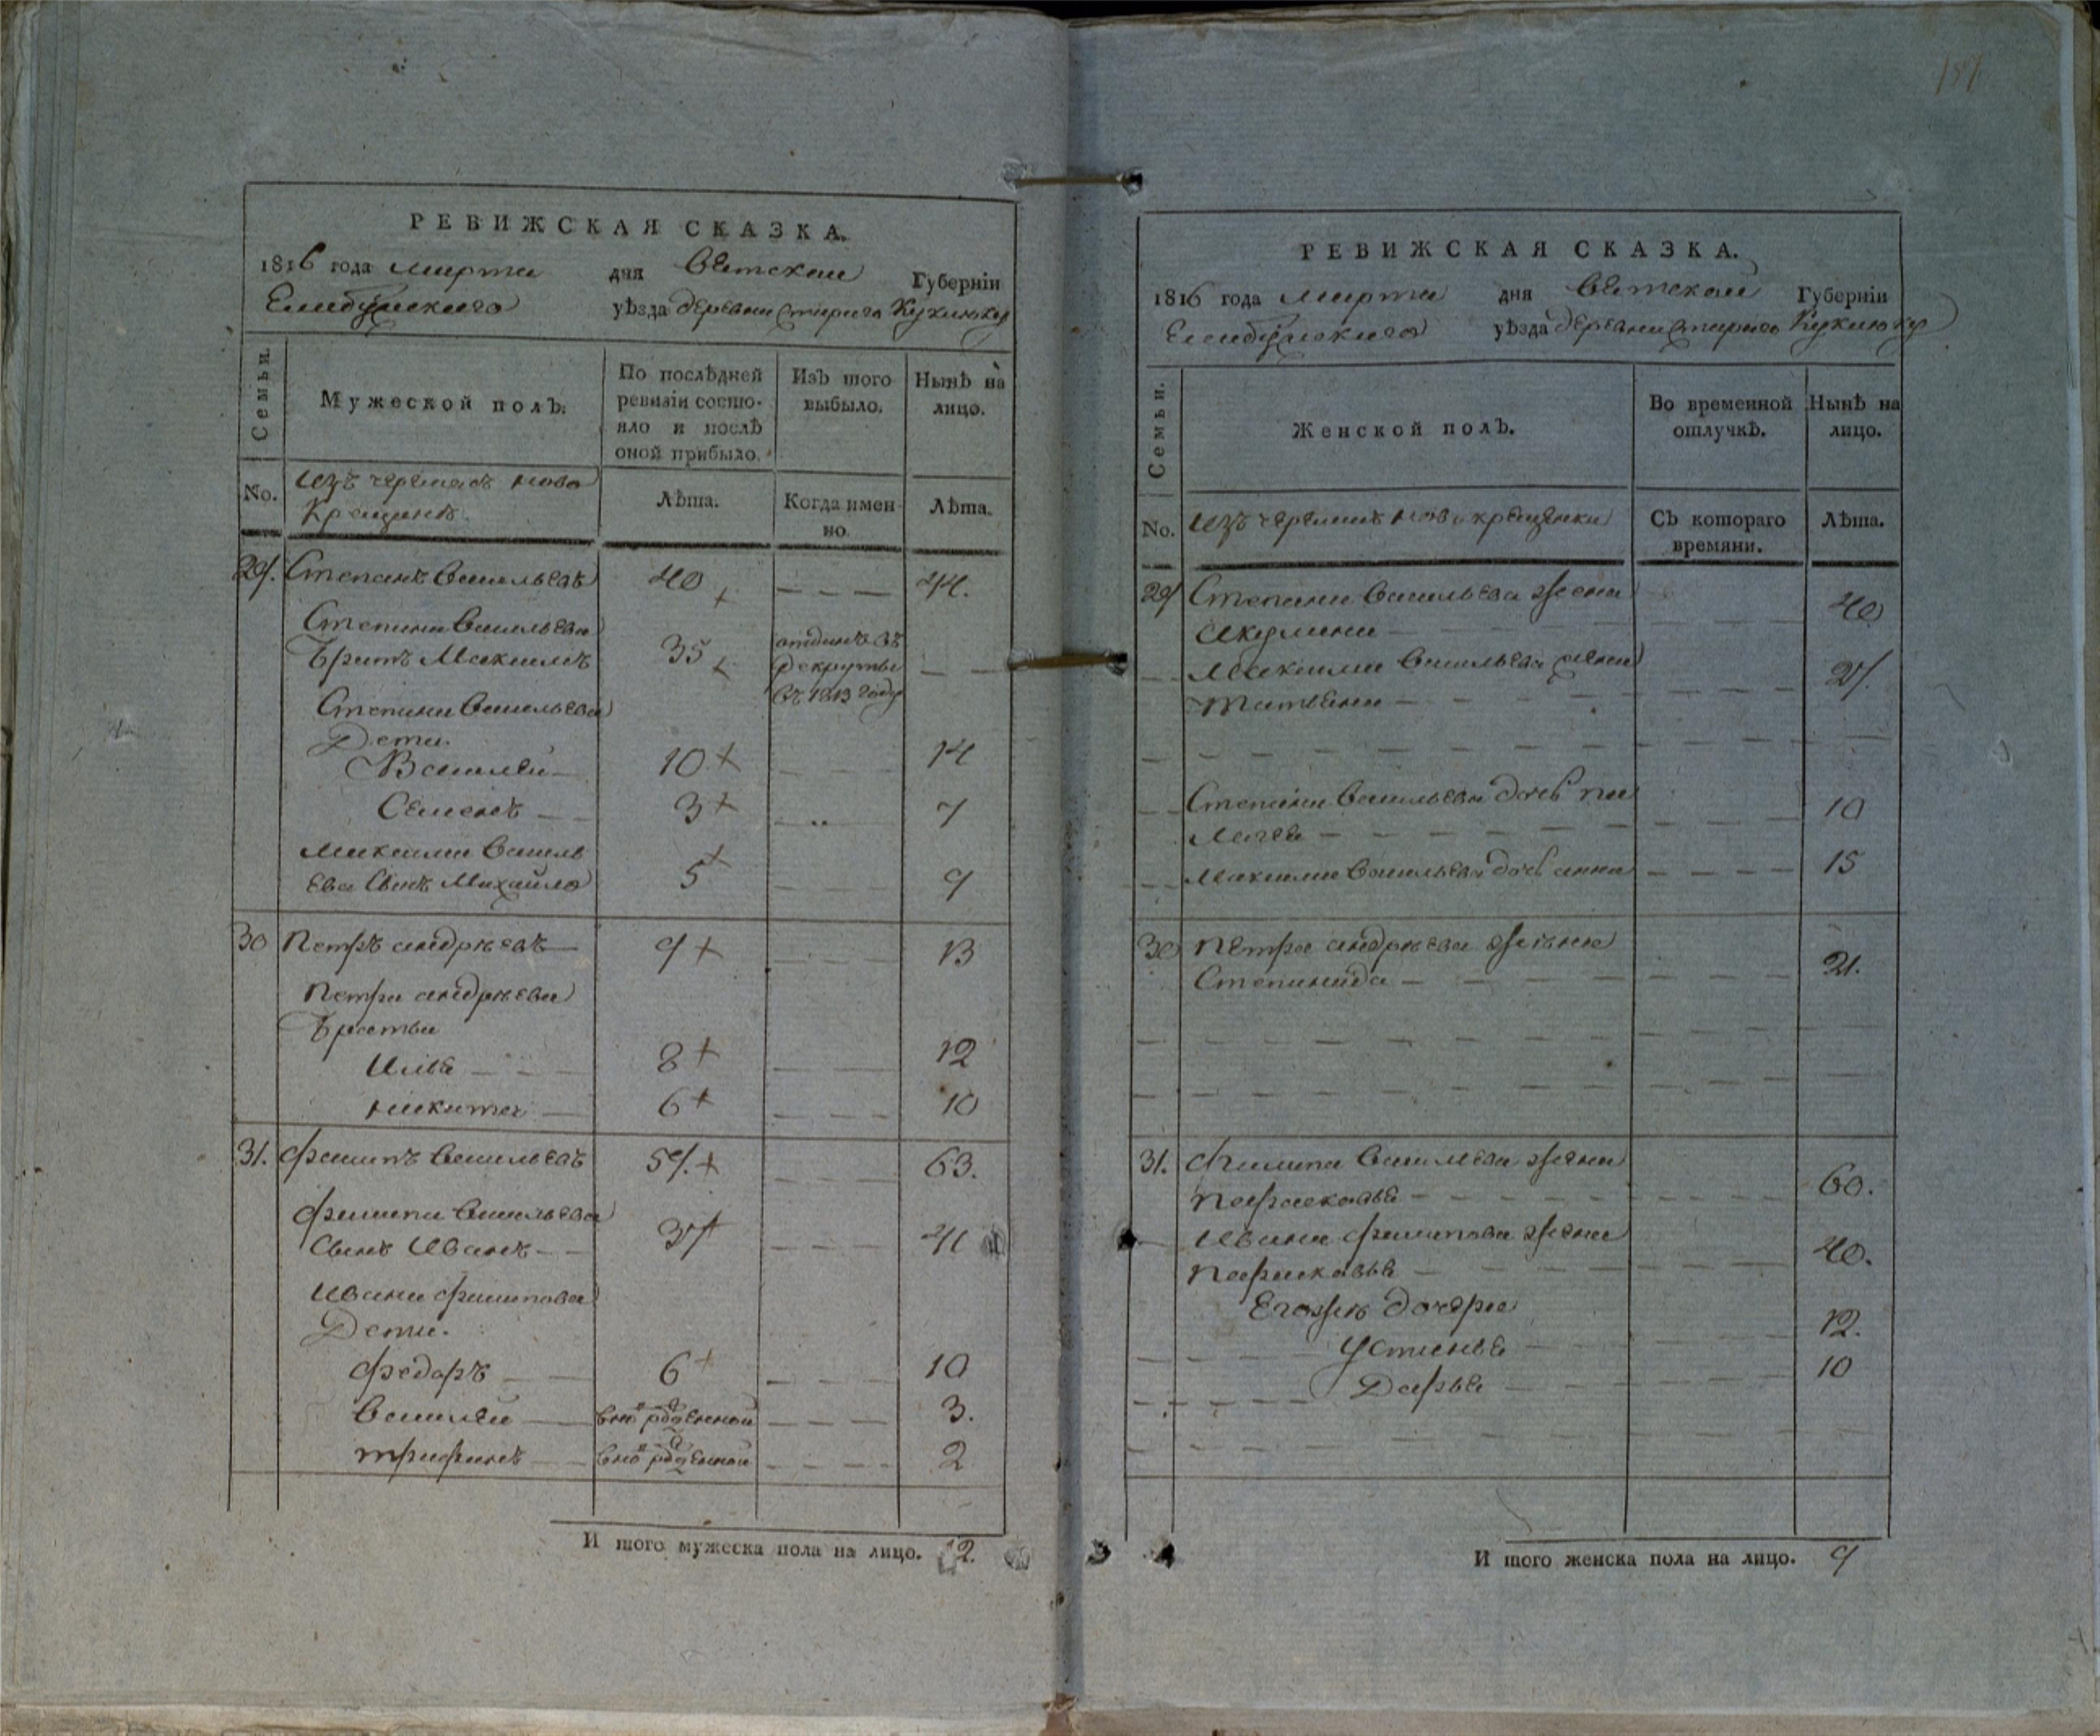 151
РЕВИЖСКАЯ СКАЗКА.
1816 года марта дня Вятской Губерніи
Елабужскаго уѣзда деревни Стараго Кукшюкуя
Семьи.
Мужеской полъ.
По послѣдней ревизіи состо-
яло и послѣ
оной прибыло.
Изъ того
выбыло.
Нынѣ на
лицо.
No.
изъ черемисъ ново
крещинъ
Лѣта.
Когда имен-
но.
Лѣта.
29. Степанъ Васильевъ 40 + — — — 44.
Степана Васильева
братъ Максимъ 35 + отданъ въ рекруты въ 1813 году — —
Степана Васильева
Дети.
Василей 10 + — — 14
Семенъ — — 3 + — 7
Максима Василь
ева сынъ Михайло 5 + — — 9
30 Петръ андрѣевъ — 9 + — — — 13
Петра андрѣева
братьи
Илья — — — 8 + — — 12
никита — 6 + — — — 10
31. Филипъ Васильевъ 59. + — — — 63.
Филипа Васильева
сынъ Иванъ — — 37 + — — — 41
Ивана Филипова
Дети.
Федоръ — — 6 + — — — 10
Василей — вно рожденной — — — 3.
трифанъ — вно рожденной — — — 2
И того мужеска пола на лицо. 12.
РЕВИЖСКАЯ СКАЗКА.
1816 года марта дня Вятской Губерніи
Елабужскаго уѣзда деревни Стараго Кукшюкуя
Семьи.
Женской полъ.
Во временной
отлучкѣ.
Нынѣ на
лицо.
No.
изъ черемисъ новокрещенки
Съ котораго
времяни.
Лѣта.
29 Степана Васильева жена
акулина — 40
Максима Васильева жена
татьяна — — — 27.
Степана Васильева дочь пе
лагея — — — 10
Максима Васильева дочь анна — — — 15
30 Петра андрѣева жена
Степанида — — — 21.
31. Филипа Васильева жена
Парасковья — — — 60.
Ивана Филипова жена
Парасковья — — — 40.
Егожъ дочери
Устинья — — 12.
Дарья — — 10
И того женска пола на лицо. 9